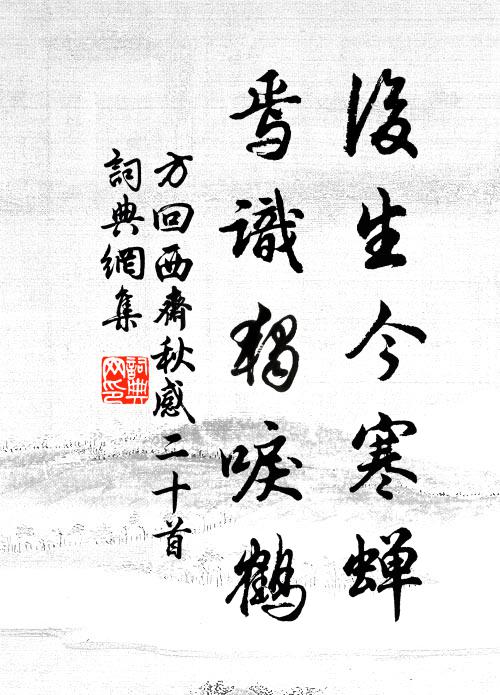 後生今寒蝉
焉識獨唳鶴
方回西齋秋感二十首
詞典網集
詞典网印